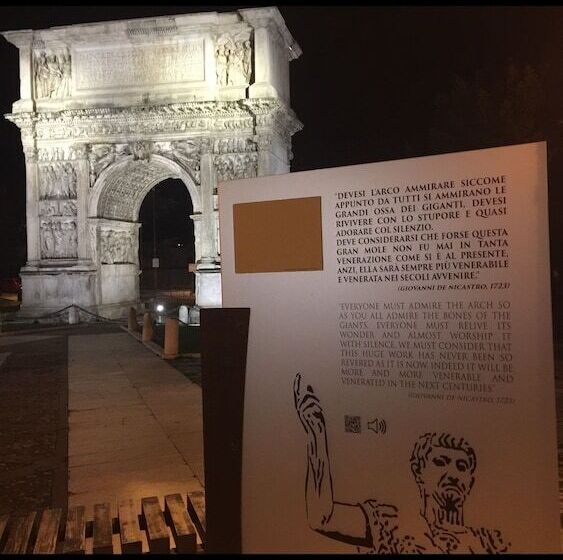 "DEVESI L'ARCO AMMIRARE SICCOME
APPUNTO DA TUTTI SI AMMIRANO LE
GRANDI OSSA DEI GIGANTI, DEVESI
RIVERIRE CON LO STUPORE E QUASI
ADORARE COL SILENZIO.
DEVE CONSIDERARSI CHE FORSE QUESTA
GRAN MOLE NON FU MAI IN TANTA
VENERAZIONE COME SI È AL PRESENTE,
ANZI, ELLA SARÀ SEMPRE PIÙ VENERABILE
E VENERATA NEI SECOLI AVVENIRE."
(GIOVANNI DE NICASTRO, 1723)
"EVERYONE MUST ADMIRE THE ARCH SO
AS YOU ALL ADMIRE THE BONES OF THE
GIANTS. EVERYONE MUST RELIVE ITS
WONDER AND ALMOST WORSHIP IT
WITH SILENCE. WE MUST CONSIDER THAT
THIS HUGE WORK HAS NEVER BEEN SO
REVERED AS IT IS NOW. INDEED IT WILL BE
MORE AND MORE VENERABLE AND
VENERATED IN THE NEXT CENTURIES"
(GIOVANNI DE NICASTRO, 1723)